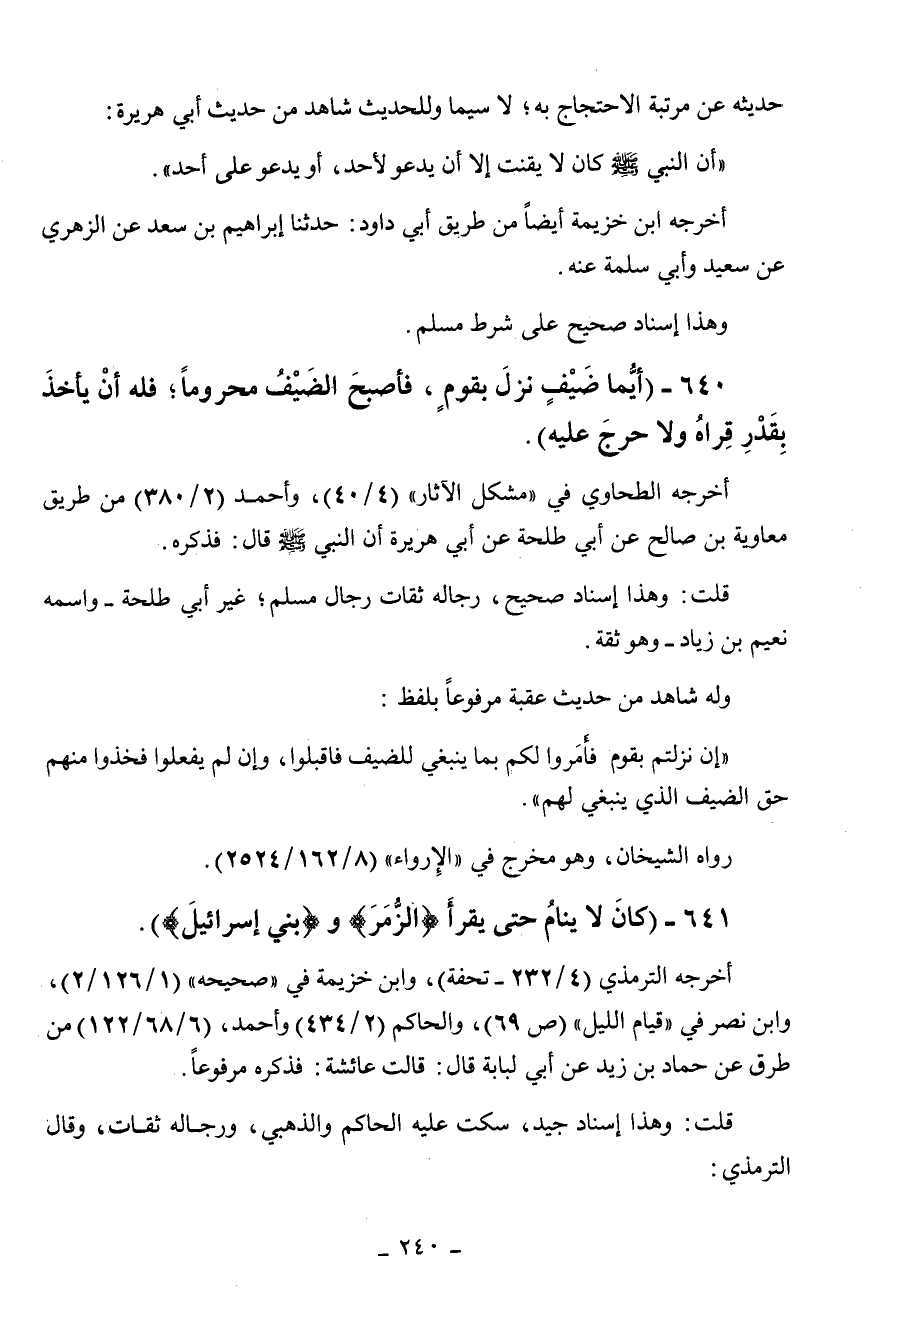 حديثه عن مرتبة الاحتجاج به؛ لا سيما وللحديث شاهد من حديث أبي هريرة:
«أن النبي ﷺ كان لا يقنت إلا أن يدعو لأحد، أو يدعو على أحد».
أخرجه ابن خزيمة أيضاً من طريق أبي داود: حدثنا إبراهيم بن سعد عن الزهري
عن سعيد وأبي سلمة عنه.
وهذا إسناد صحيح على شرط مسلم.
٦٤٠ - (أيُّما ضَيْفٍ نزلَ بقومٍ، فأصبحَ الضَيْفُ محروماً؛ فله أنْ يأخذَ
بِقَدْرِ قِراهُ ولا حرجَ عليه).
أخرجه الطحاوي في «مشكل الآثار» (٤/٤٠)، وأحمد (٢/٣٨٠) من طريق
معاوية بن صالح عن أبي طلحة عن أبي هريرة أن النبي ﷺ قال: فذكره.
قلت: وهذا إسناد صحيح، رجاله ثقات رجال مسلم؛ غير أبي طلحة - واسمه
نعيم بن زياد - وهو ثقة.
وله شاهد من حديث عقبة مرفوعاً بلفظ:
«إن نزلتم بقوم فأَمَروا لكم بما ينبغي للضيف فاقبلوا، وإن لم يفعلوا فخذوا منهم
حق الضيف الذي ينبغي لهم».
رواه الشيخان، وهو مخرج في «الإرواء» (٨/١٦٢/٢٥٢٤).
٦٤١ - (كانَ لا ينامُ حتى يقرأَ ﴿الزُّمَرَ﴾ و ﴿بني إسرائيلَ﴾).
أخرجه الترمذي (٤/٢٣٢ - تحفة)، وابن خزيمة في «صحيحه» (١/١٢٦/٢)،
وابن نصر في «قيام الليل» (ص ٦٩)، والحاكم (٢/٤٣٤) وأحمد، (٦/٦٨/١٢٢) من
طرق عن حماد بن زيد عن أبي لبابة قال: قالت عائشة: فذكره مرفوعاً.
قلت: وهذا إسناد جيد، سكت عليه الحاكم والذهبي، ورجاله ثقات، وقال
الترمذي:
- ٢٤٠ -